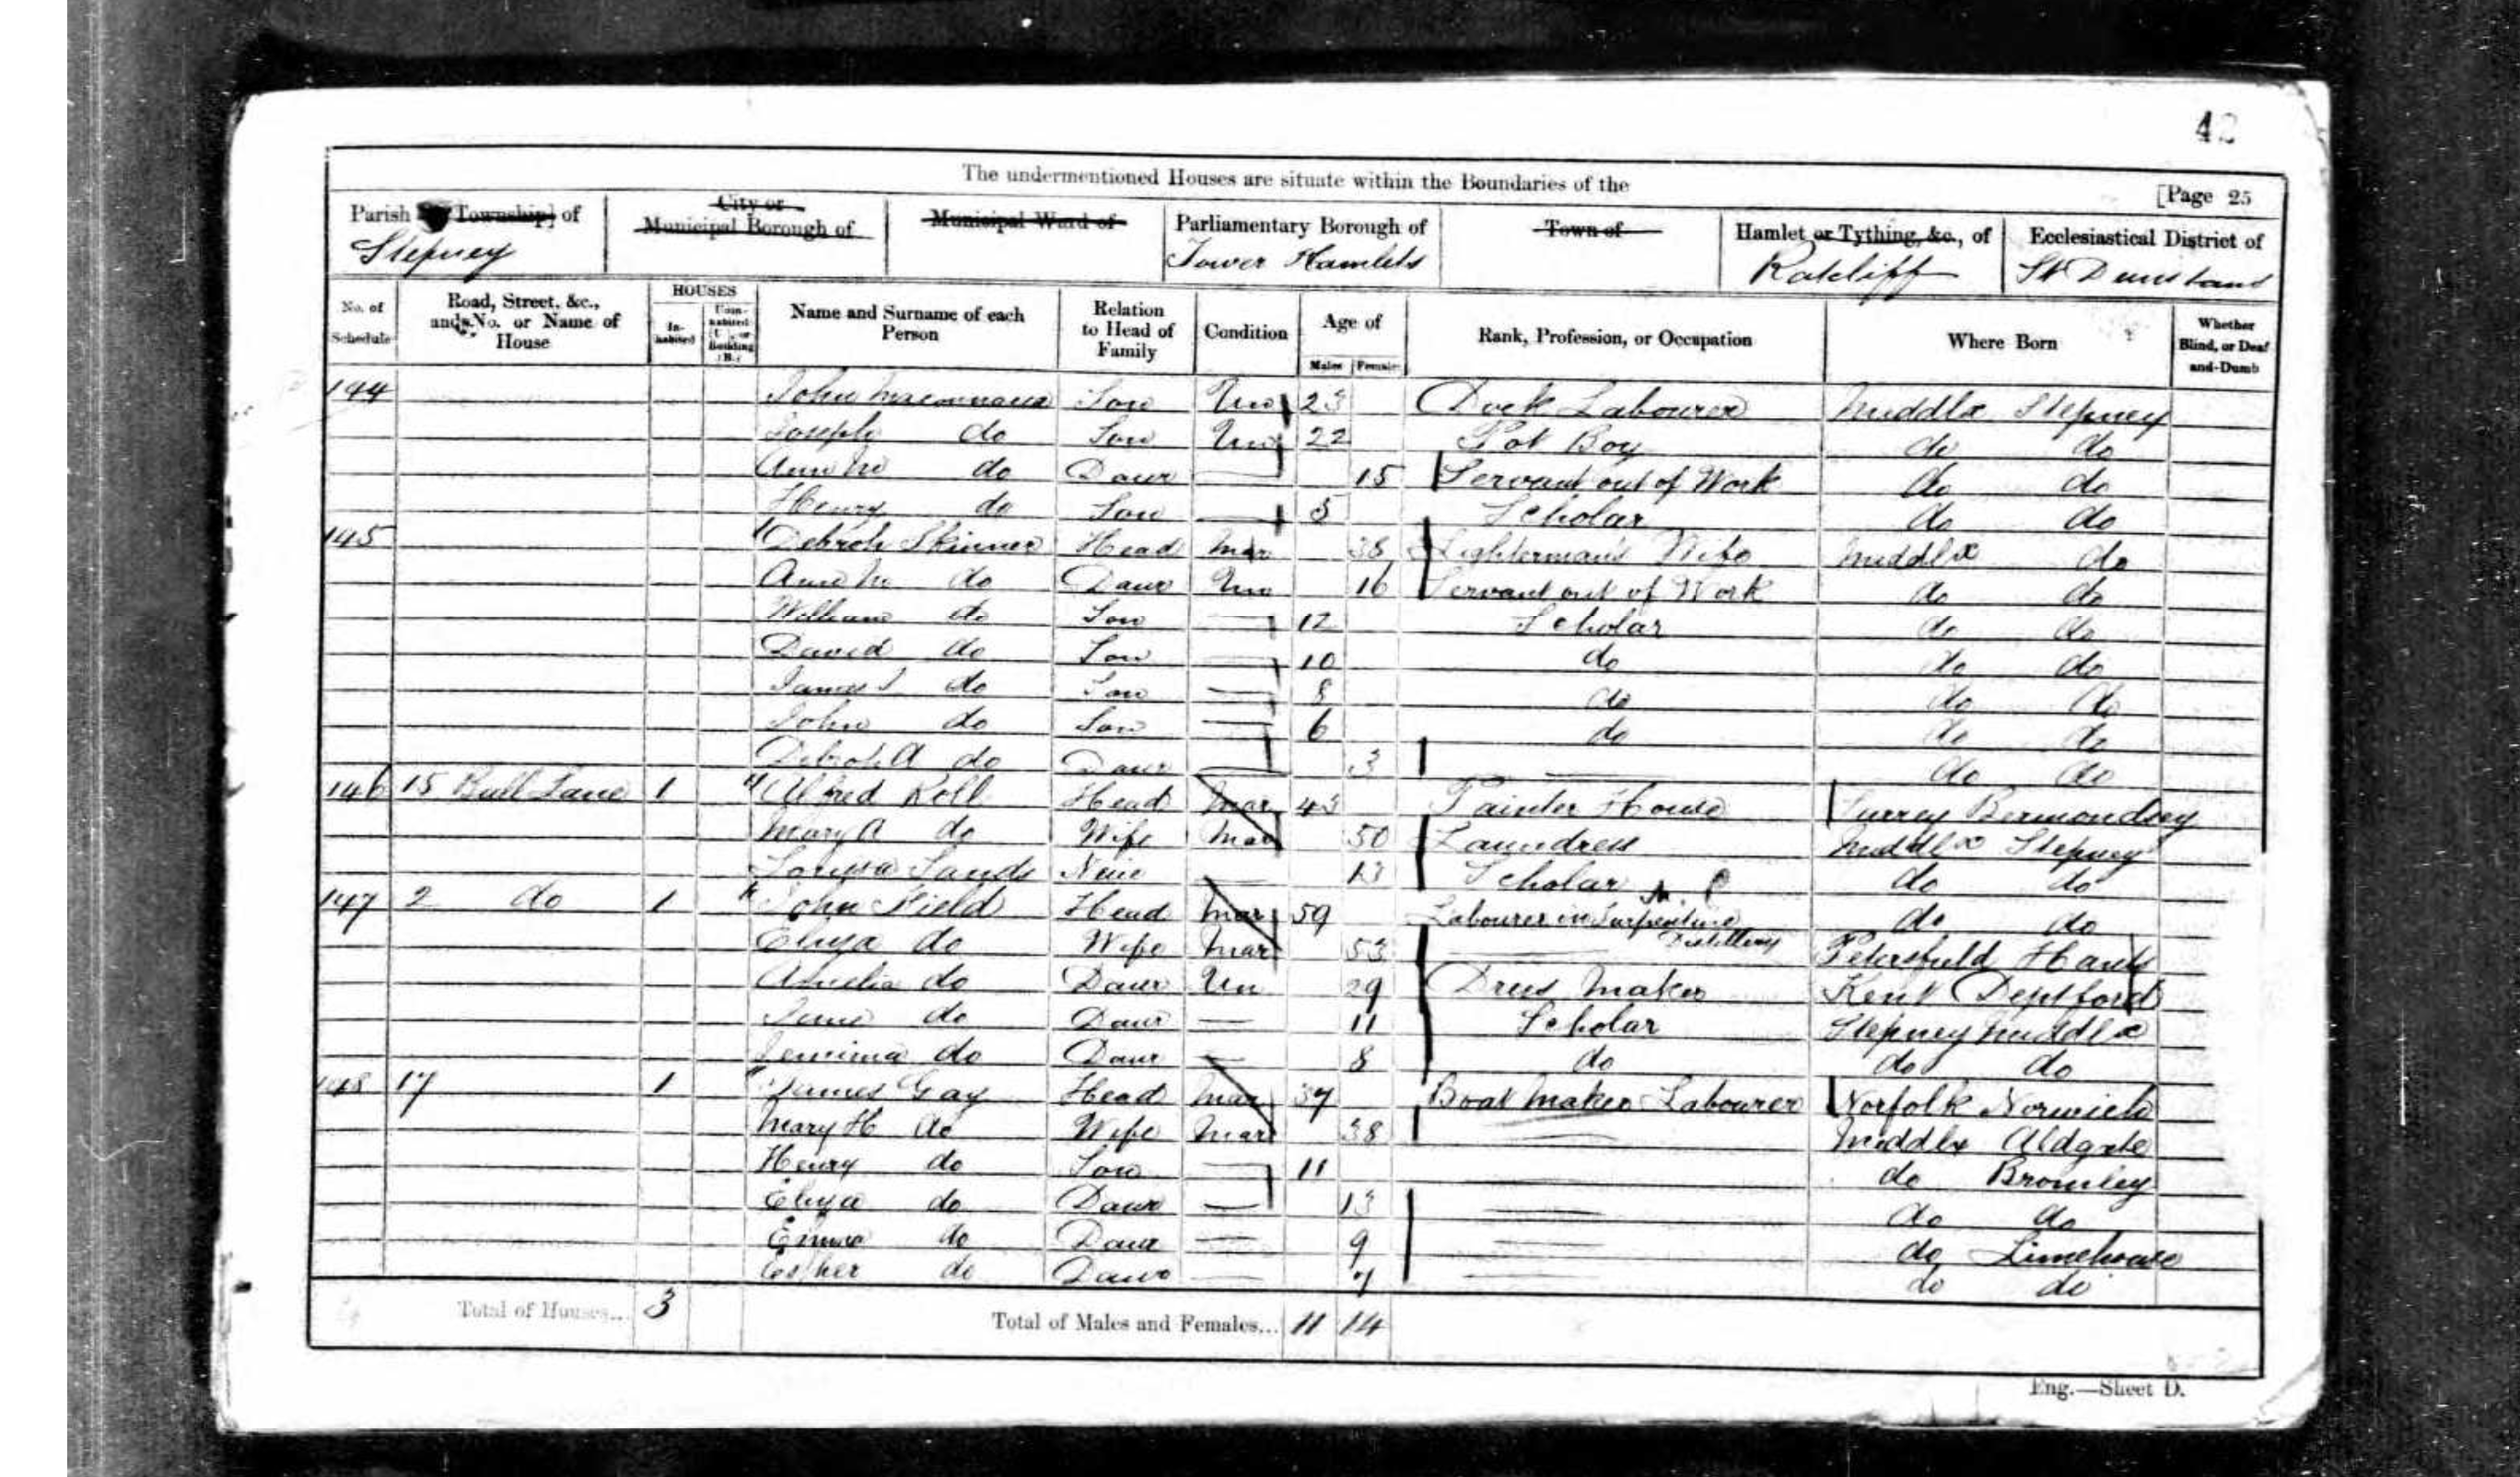 42
The undermentioned Houses are situate within the Boundaries of the
[Page 25
Parish Township] of
Stepney
City or
Municipal Borough of
Municipal Ward of
Parliamentary Borough of
Tower Hamlets
Town of
Hamlet or Tything, &c., of
Ratcliff
Ecclesiastical District of
St Dunstans
No. of Schedule
Road, Street, &c., and No. or Name of House
HOUSES
In-habited
Unin-habited (U.), or Building (B.)
Name and Surname of each Person
Relation to Head of Family
Condition
Age of
Males Females
Rank, Profession, or Occupation
Where Born
Whether Blind, or Deaf-and-Dumb
144 John Son Un 23 Dock Labourer Middlx Stepney
Joseph do Son Un 22 Pot Boy do do
Ann M do Daur — 15 Servant out of Work do do
Henry do Son — 5 Scholar do do
145 Debroh Skinner Head Mar 38 Lighterman's Wife Middlx do
Ann M do Daur Un 16 Servant out of Work do do
William do Son — 12 Scholar do do
David do Son — 10 do do do
James do Son — 8 do do do
John do Son — 6 do do do
Debroh A do Daur — 3 — do do
146 15 Bull Lane 1 Alfred Head Mar 43 Painter House Surrey Bermondsey
Mary A do Wife Mar 50 Laundress Middlx Stepney
Sands — 13 Scholar do do
147 2 do 1 John Field Head Mar 59 Labourer in Turpentine Distillery do do
Eliza do Wife Mar 53 — Petersfield Hants
Amelia do Daur Un 29 Dress Maker Kent Deptford
Jane do Daur — 11 Scholar Stepney Middlx
Jemima do Daur — 8 do do do
148 17 1 James Gay Head Mar 37 Boat Maker Labourer Norfolk Norwich
Mary H do Wife Mar 38 — Middlx Aldgate
Henry do Son — 11 — do Bromley
Eliza do Daur — 13 — do do
Emma do Daur — 9 — do Limehouse
Esther do Daur — 7 — do do
Total of Houses... 3
Total of Males and Females... 11 14
Eng.—Sheet D.